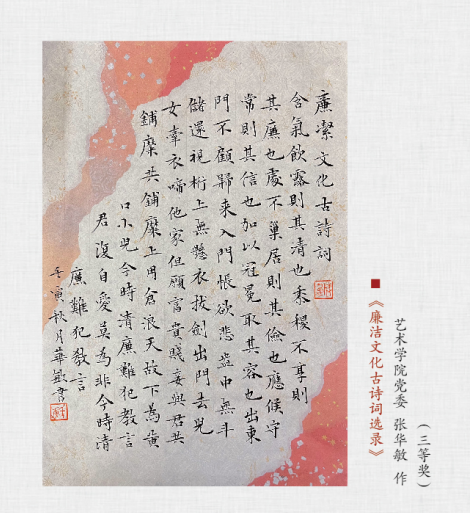 廉潔文化古詩詞
含氣飲露則其清也黍稷不享則
其廉也處不巢居則其儉也應候守
常則其信也加以冠冕取其容也出東
門不顧歸来入門悵欲悲盎中無斗
儲還視桁上無懸衣拔劍出門去兒
女牽衣啼他家但願富貴賤妾與君共
餔糜共餔糜上用倉浪天故下為黃
口小兒今時清廉難犯教言
君復自愛莫為非今時清
廉難犯教言
壬寅秋月華敏書
《廉洁文化古诗词选录》
艺术学院党委 张华敏 作
（三等奖）